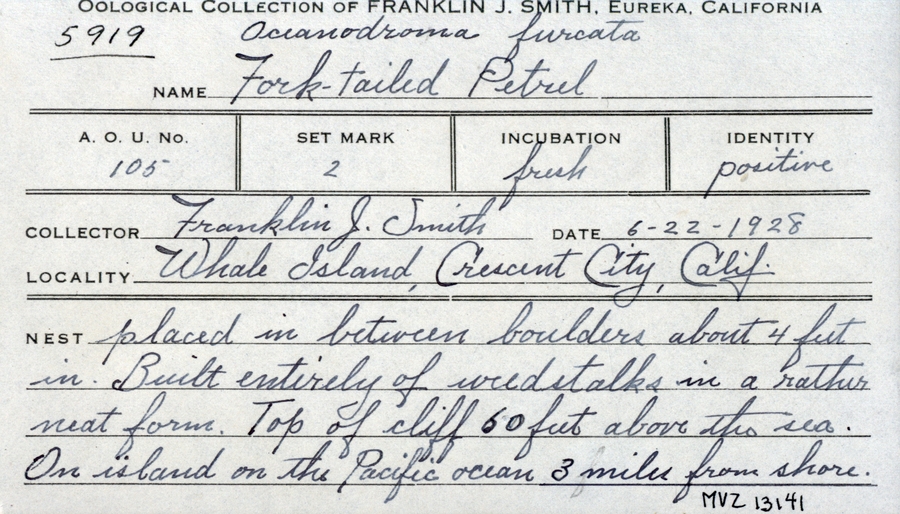 OOLOGICAL COLLECTION OF FRANKLIN J. SMITH, EUREKA, CALIFORNIA
5919 Oceanodroma furcata
NAME Fork-tailed Petrel
A. O. U. No. SET MARK INCUBATION IDENTITY
105 2 fresh positive
COLLECTOR Franklin J. Smith DATE 6-22-1928
LOCALITY Whale Island, Crescent City, Calif.
NEST placed in between boulders about 4 feet
in. Built entirely of weedstalks in a rather
neat form. Top of cliff 60 feet above the sea.
On island on the Pacific ocean 3 miles from shore.
MVZ 13141